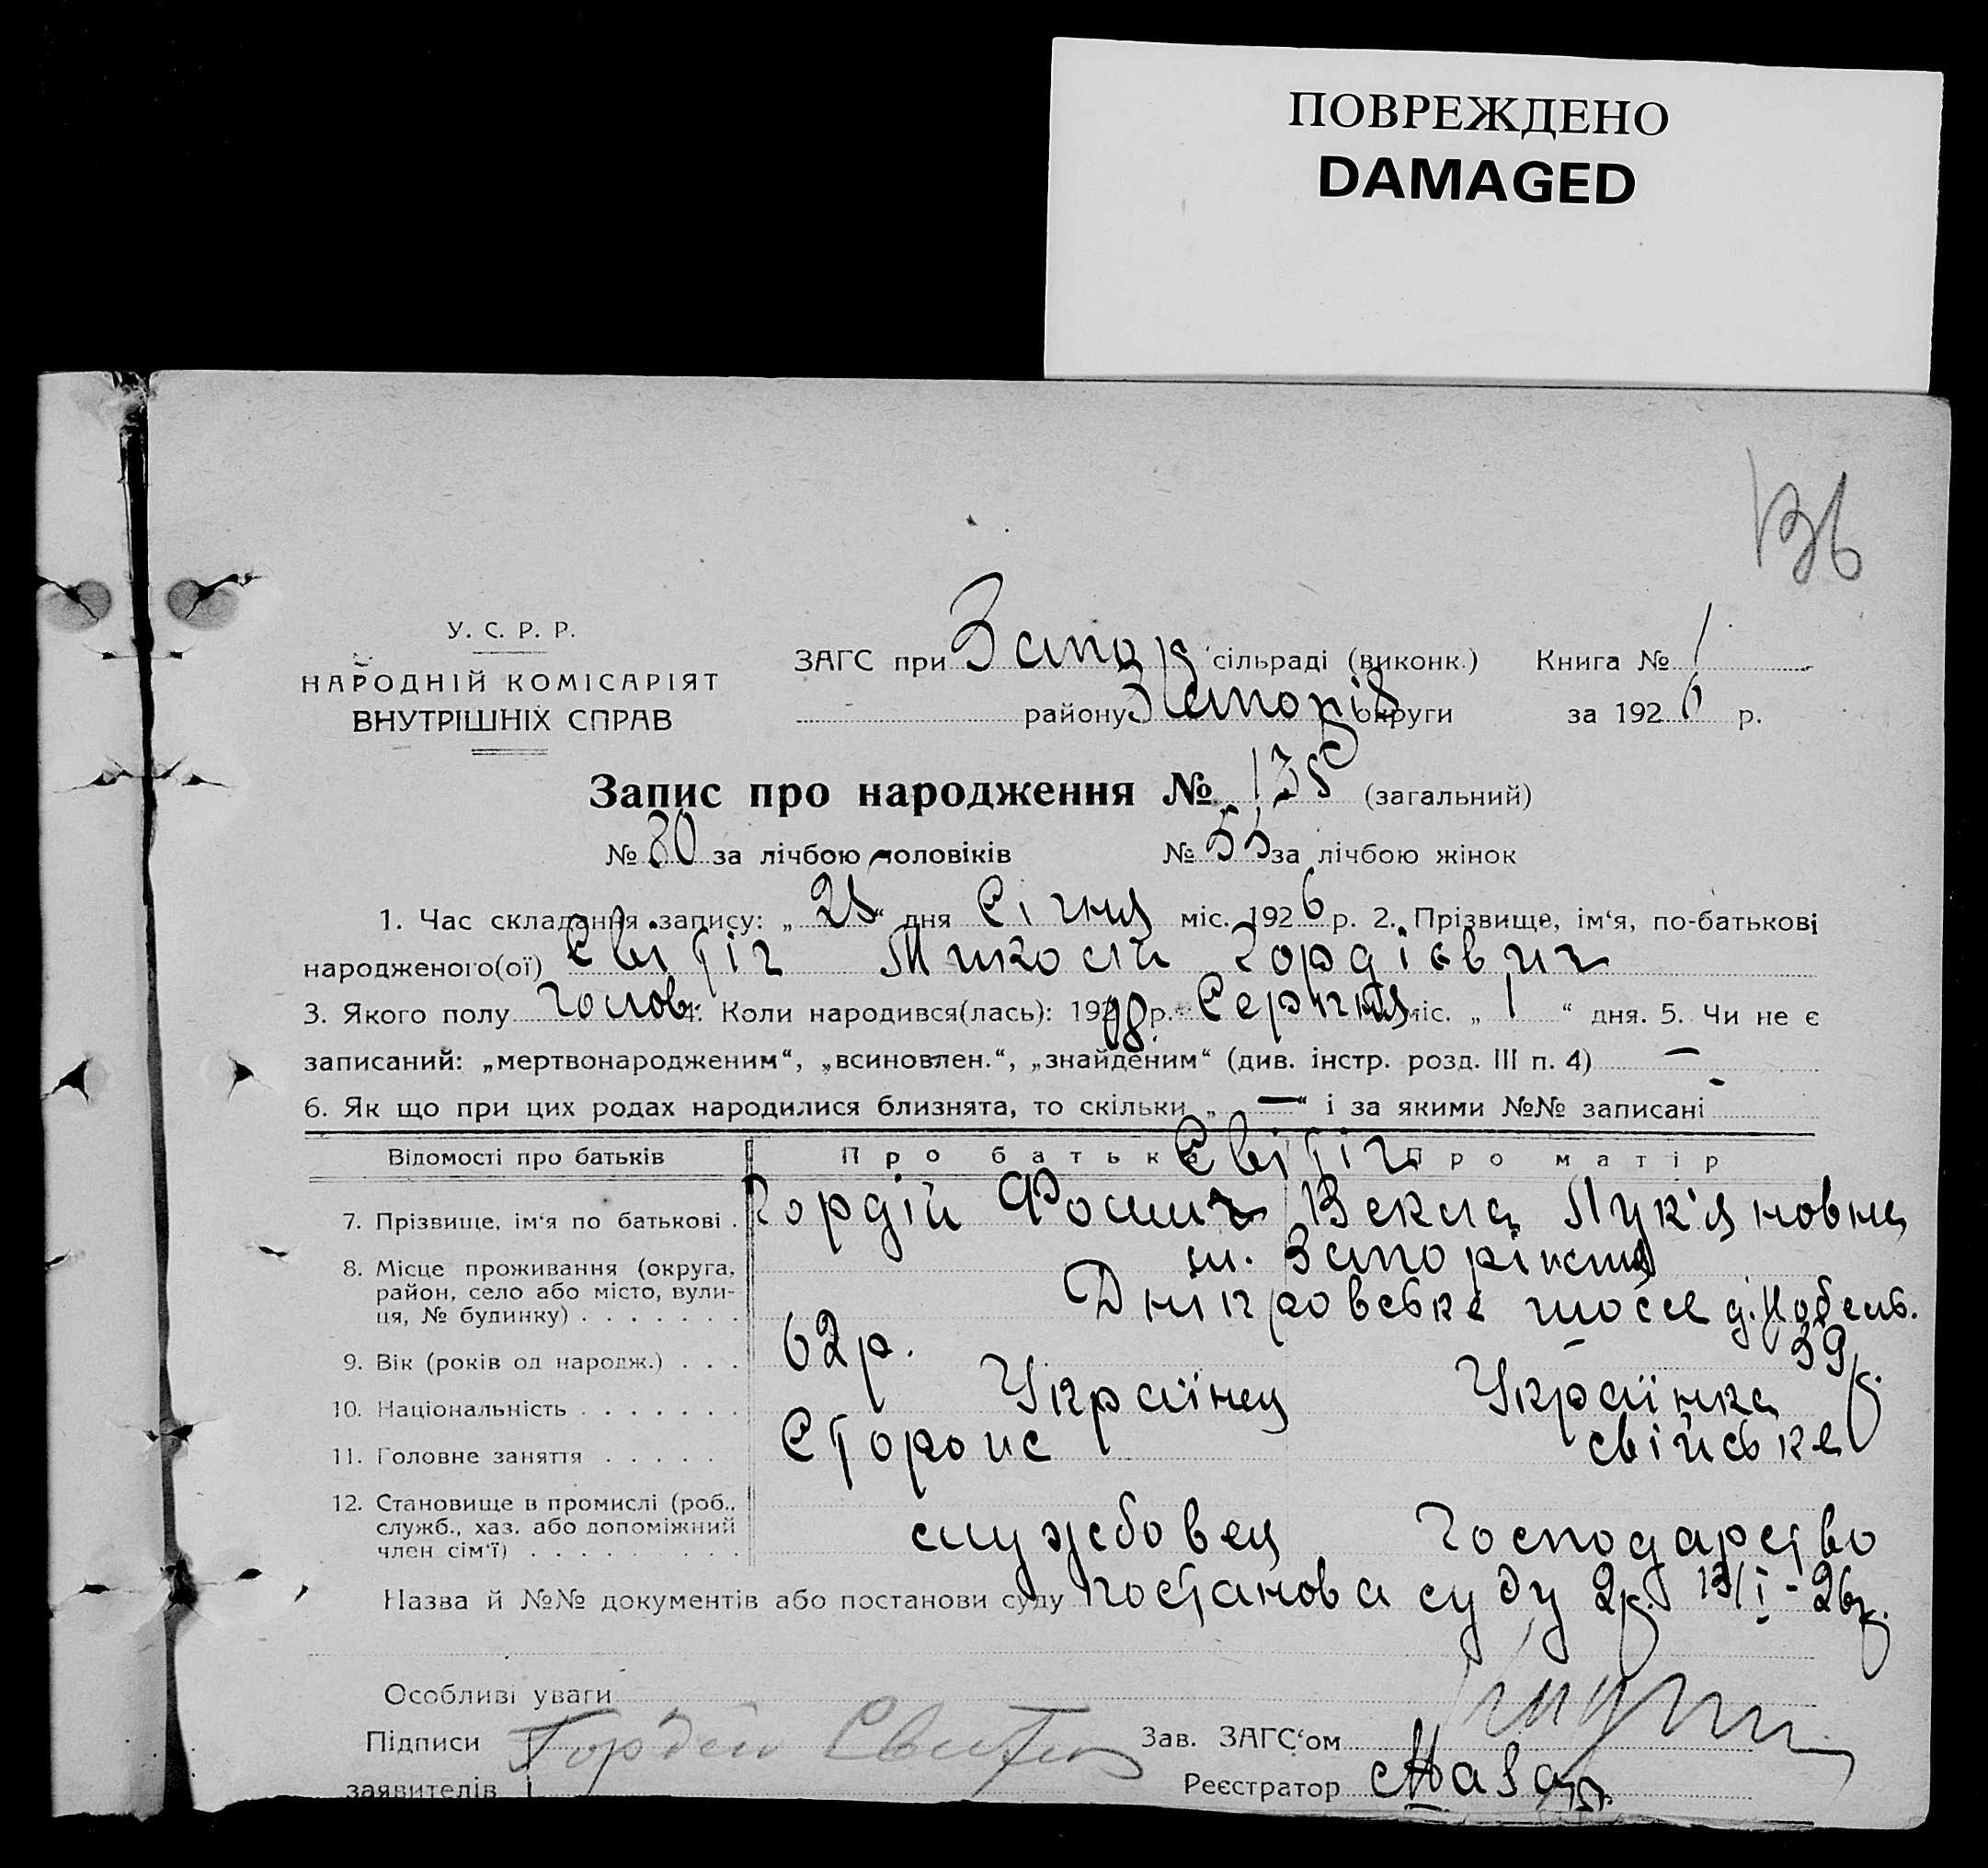 ПОВРЕЖДЕНО
DAMAGED
136
У. С. Р. Р.
НАРОДНІЙ КОМІСАРІЯТ
ВНУТРІШНІХ СПРАВ
ЗАГС при Запор сільраді (виконк.) Книга № 1
району Запоріз округи за 1926 р.
Запис про народження № 135 (загальний)
№ 80 за лічбою чоловіків № 55 за лічбою жінок
1. Час складання запису: „28“ дня Січня міс. 1926 р. 2. Прізвище, ім‘я, по-батькові
народженого(ої) Світіч Микола Гордієвич
3. Якого полу Чолов. 4. Коли народився(лась): 19 08 р. Серпня міс. „1“ дня. 5. Чи не є
записаний: „мертвонародженим“, „всиновлен.“, „знайденим“ (див. інстр. розд. III п. 4) —
6. Як що при цих родах народилися близнята, то скільки „—“ і за якими №№ записані -
Відомості про батьків Про батька Про матір
Світіч
7. Прізвище, ім‘я по батькові . Гордій Фомич Векла Лук'яновна
8. Місце проживання (округа, район, село або місто, вули-ця, № будинку) . . . . . . . м. Запоріжжя
Дніпровське шосе д. Нобель.
9. Вік (років од народж.) . . . 62р. 39р.
10. Національність . . . . . . . Українец Українка
11. Головне заняття . . . . . Сторож свійське
12. Становище в промислі (роб., служб., хаз. або допоміжний член сім‘ї) . . . . . . . . . службовец Господарство
Назва й №№ документів або постанови суду Постанова суду 2р. 13/I-26р.
Особливі уваги
Підписи Гордей Свитич Зав. ЗАГС‘ом
заявителів Реєстратор